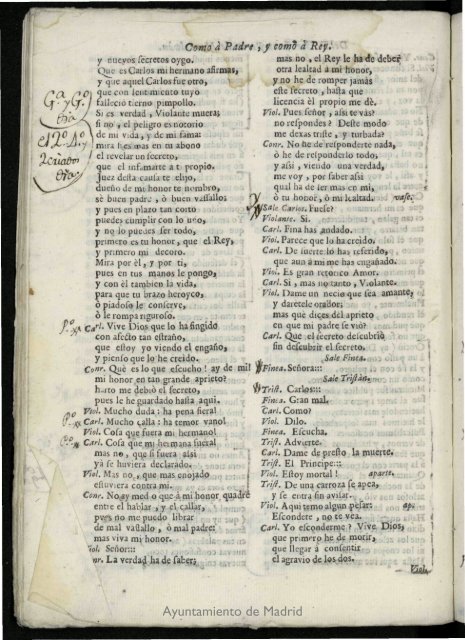 Como à Padre, y como à Rey.
y nuevos secretos oygo.
Que es Carlos mi hermano afirmas,
y que aquel Carlos fue otro,
que con sentimiento tuyo
falleciò tierno pimpollo.
Si es verdad, Violante muera;
si no, el peligro es notorio
de mi vida, y de mi fama:
mira si es mas en tu abono
el revelar un secreto,
que el infamarte a tì propio.
Juez desta causa te elijo,
dueño de mi honor te nombro,
sè buen padre, ò buen vassallo:
y pues en plazo tan corto
puedes cumplir con lo uno,
y no lo puedes ser todo,
primero es tu honor, que el Rey,
y primero mi decoro.
Mira por èl, y por tì,
pues en tus manos le pongo,
y con èl tambien la vida,
para que tu brazo heroyco,
ò piadoso le conserve,
ò le rompa riguroso.
Carl. Vive Dios que lo ha fingido
con afecto tan estraño,
que estoy yo viendo el engaño,
y pienso que lo he creido.
Conr. Què es lo que escucho! ay de mi!
mi honor en tan grande aprieto?
harto me debiò el secreto,
pues le he guardado hasta aqui.
Viol. Mucho duda: ha pena fiera!
Carl. Mucho calla: ha temor vano!
Viol. Cosa que fuera mi hermano!
Carl. Cosa que mi hermana fuera!
mas no, que si fuera assi
yà se huviera declarado.
Viol. Mas no, que mas enojado
estuviera contra mi.
Conr. No ay medio que à mi honor quadre
entre el hablar, y el callar,
pues no me puedo librar
de mal vassallo, ò mal padre:
mas viva mi honor.
Viol. Señor:::
Conr. La verdad ha de saber;
mas no, el Rey le ha de deber
otra lealtad à mi honor,
y no he de romper jamàs
este secreto, hasta que
licencia èl propio me dè.
Viol. Pues señor, assi te vàs?
no respondes? Deste modo
me dexas triste, y turbada?
Conr. No he de responderte nada,
ò he de responderlo todo;
y assi, viendo una verdad,
me voy, por saber assi
qual ha de ser mas en mi,
ò tu honor, ò mi lealtad. vase.
Sale Carlos. Fuese?
Violante. Si.
Carl. Fina has andado.
Viol. Parece que lo ha creido.
Carl. De suerte lo has referido,
que aun à mi me has engañado.
Viol. Es gran retorico Amor.
Carl. Si, mas no tanto, Violante.
Viol. Dame un necio que sea amante,
y darètele orador:
mas què dices del aprieto
en que mi padre se viò?
Carl. Que el secreto descubriò
sin descubrir el secreto.
Sale Finea.
Finea. Señora:::
Sale Tristàn.
Trist. Carlos:::
Finea. Gran mal.
Carl. Como?
Viol. Dilo.
Finea. Escucha.
Trist. Advierte.
Carl. Dame de presto la muerte.
Trist. El Principe:::
Viol. Estoy mortal! aparte.
Trist. De una carroza se apea,
y se entra sin avisar.
Viol. Aqui temo algun pesar: ap.
Escondete, no te vea.
Carl. Yo esconderme? Vive Dios,
que primero he de morir,
que llegar à consentir
el agravio de los dos.
Viol.
Ayuntamiento de Madrid